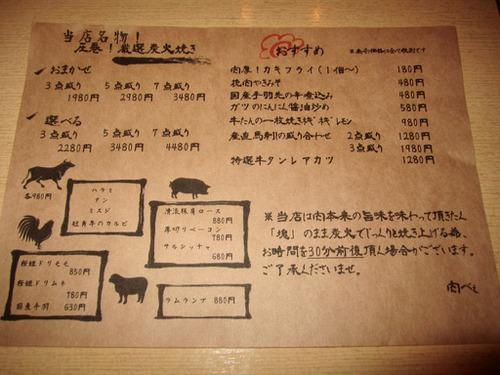 当店名物！
圧巻！厳選炭火焼き
おまかせ
3点盛り 5点盛り 7点盛り
1980円 2980円 3480円
選べる
3点盛り 5点盛り 7点盛り
2280円 3480円 4480円
各980円
ハラミ
タン
ミスジ
牛のカルビ
豚肩ロース
880円
厚切りベーコン
780円
サルシッチャ
680円
桜姫ドリモモ
880円
桜姫ドリムネ
780円
国産手羽 630円
ラムランプ 880円
おすすめ
※表示価格は全て税別です
肉厚！カキフライ(1個〜) 180円
焼肉やきみそ 480円
国産手羽先の辛煮込み 480円
ガツのにんにん醤油炒め 580円
牛たんの一枚焼きネギネギレモン 980円
産直馬刺の盛り合わせ 2点盛り 1280円
3点盛り 1980円
特選牛タンレアカツ 1280円
※当店は肉本来の旨味を味わって頂きたく
「塊」のまま炭火でじっくりと焼き上げる為、
お時間を30分前後頂く場合がございます。
ご了承くださいませ。